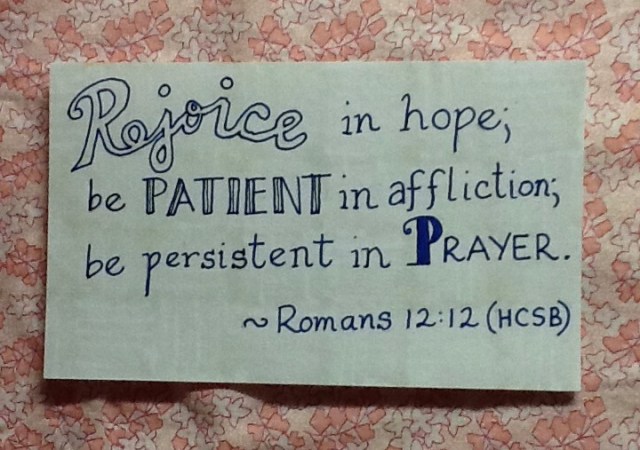 Rejoice in hope;
be PATIENT in affliction;
be persistent in PRAYER.
~ Romans 12:12 (HCSB)